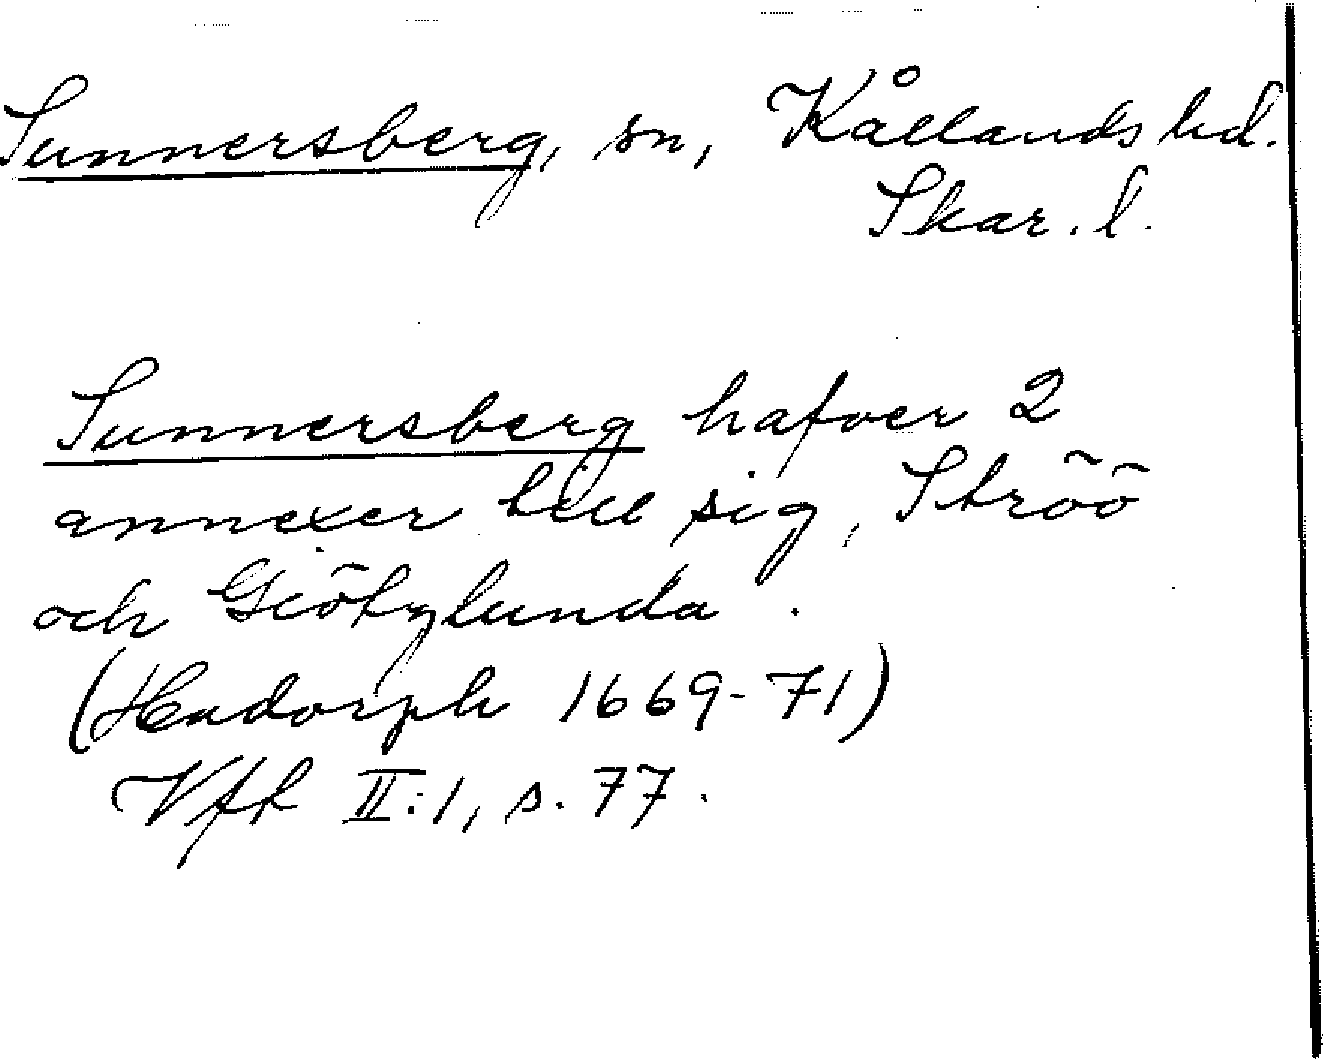 Sunnersberg, sn, Kållands hd.
Skar. l.
Sunnersberg hafver 2
annexer till sig, Ströö
och Giötzlunda.
(Hadorph 1669-71)
Vfk II:1, s. 77.